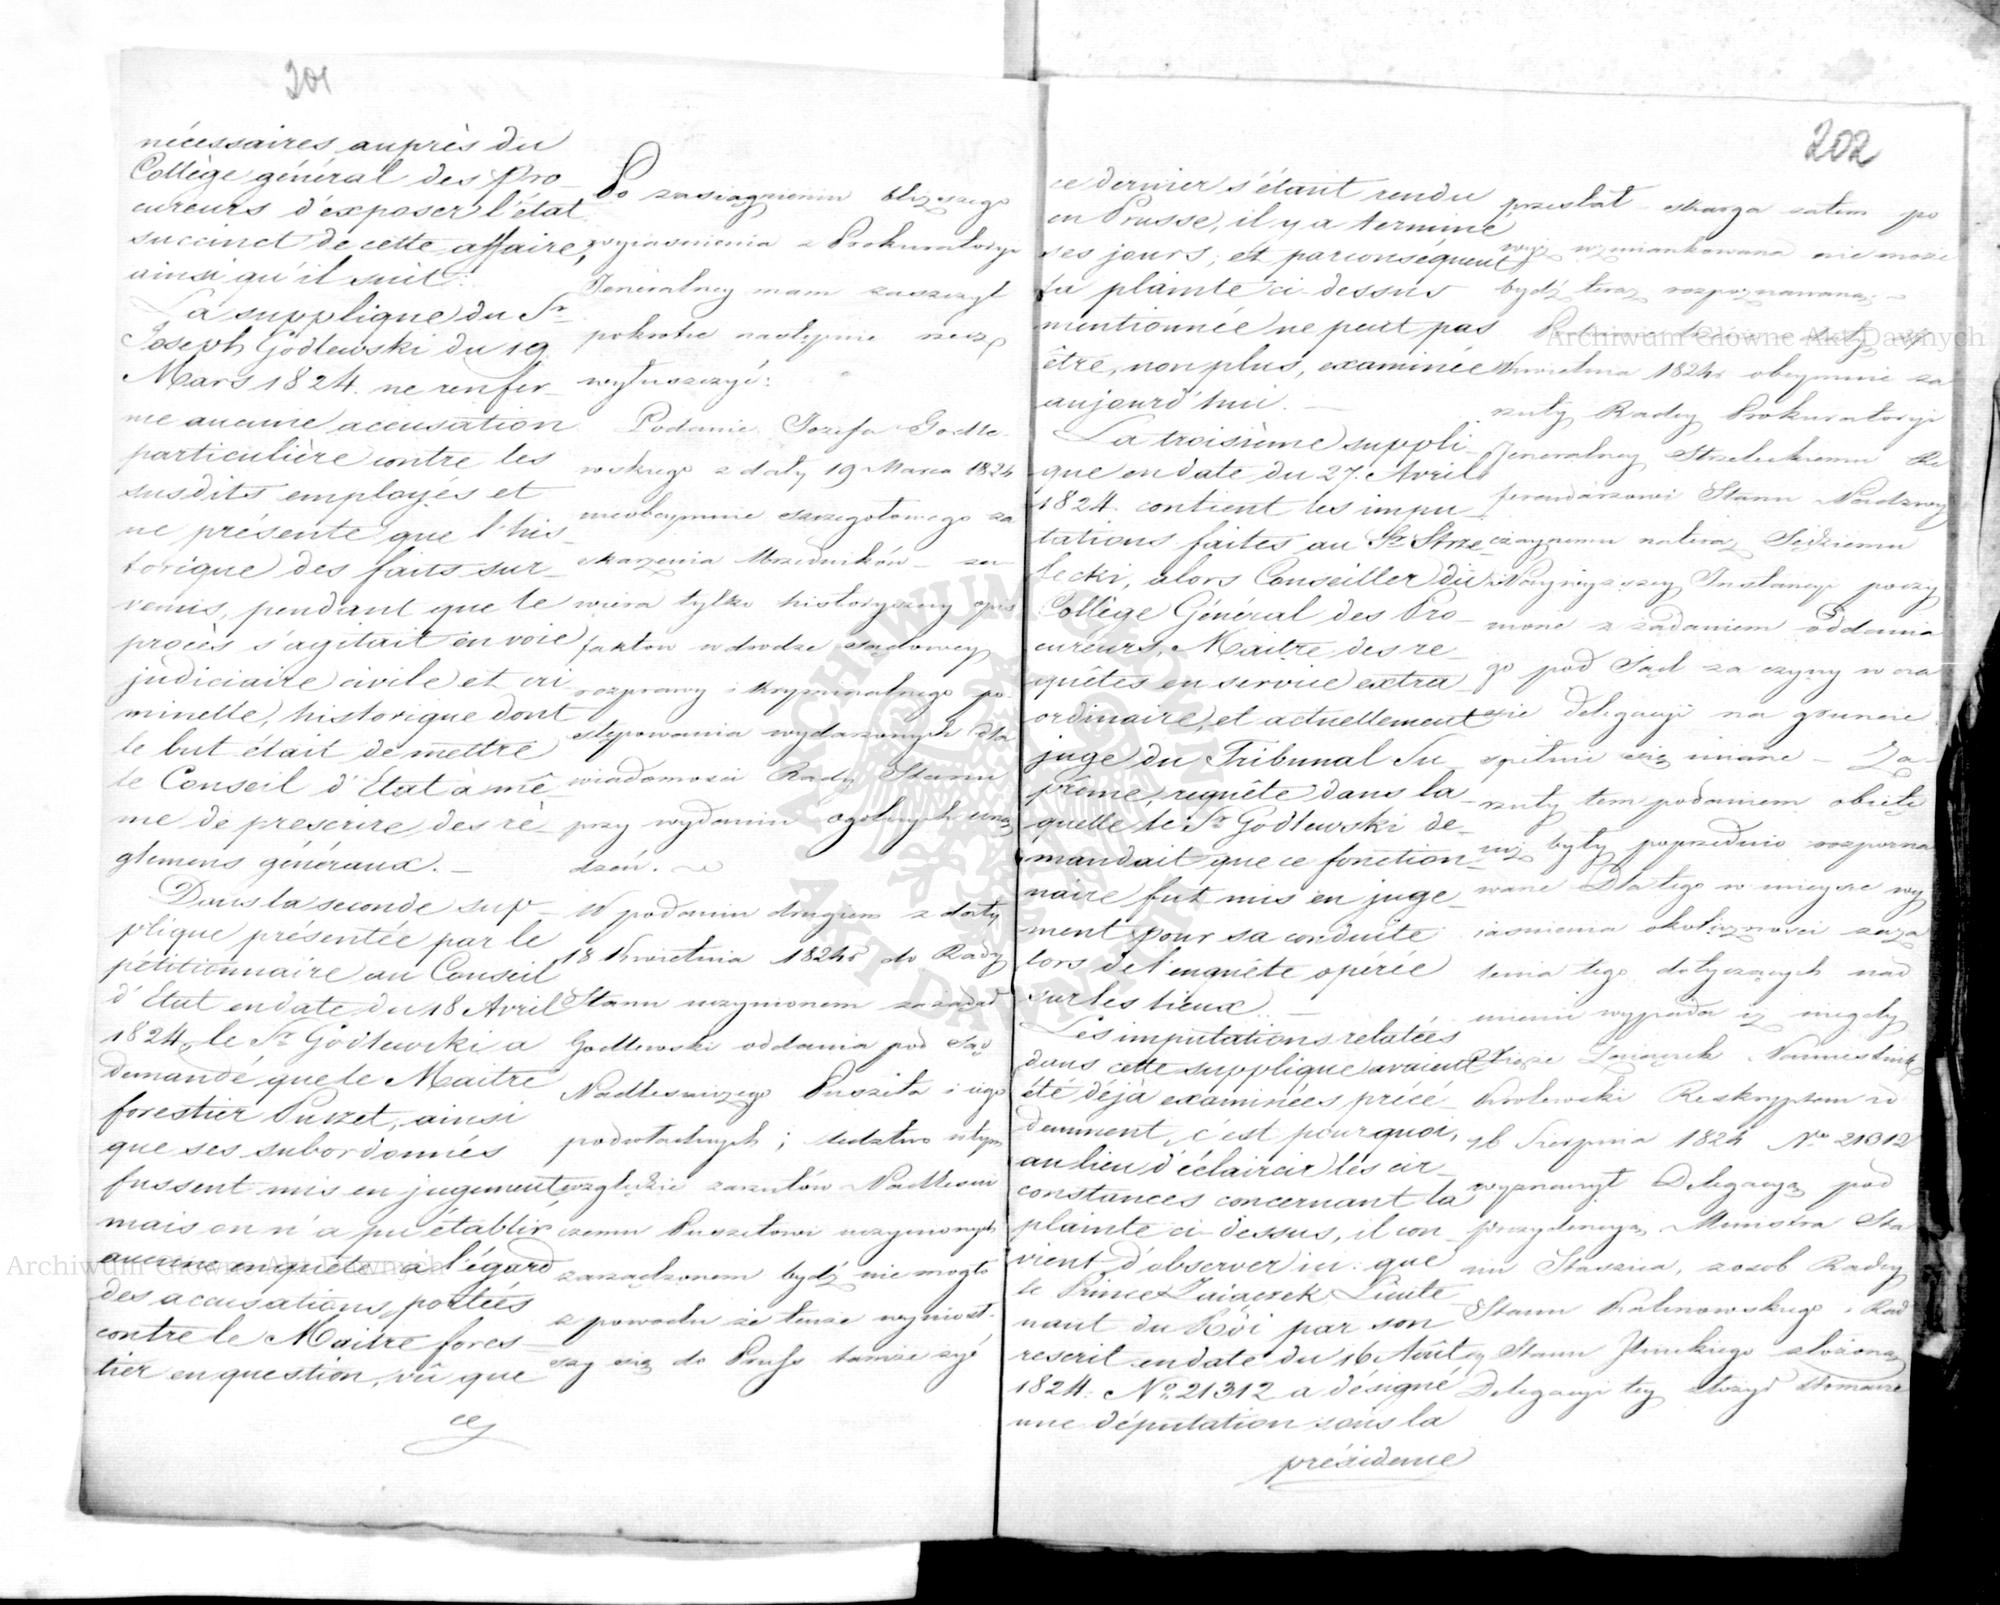 201
nécessaires auprès du
Collège général des Pro-
cureurs d'exposer l'état
succinct de cette affaire,
ainsi qu'il suit:
La supplique du Sr
Joseph Godlewski du 19
Mars 1824. ne renfer-
me aucune accusation
particulière contre les
susdits employés et
ne présente que l'his-
torique des faits sur-
venus, pendant que le
procès s'agitait en voie
judiciaire civile et cri
minelle, historique dont
le but était de mettre
le Conseil d'Etat à mê-
me de prescrire des rè-
glemens généraux. -
Dans la seconde sup-
plique présentée par le
pétitionnaire au Conseil
d'Etat en date du 18 Avril
1824, le Sr Godlewski a
demandé que le Maitre
forestier Puszet, ainsi
que ses subordonnés
fussent mis en jugement
mais on n'a pu établir
aucune enquête à l'égard
des accusations portées
contre le Maitre fores-
tier en question, vû que
ce
Po zasiągnieniu bliższego
wyjaśnienia z Prokuratoryi
Jeneralney mam zaszczyt
pokrótce następnie rzecz
wyłuszczyć:
Podanie Jozefa Godle-
wskiego z daty 19 Marca 1824
nieobeymuie szczegołowego za
skarżenia Urzędników - za-
wiera tylko historyczny opis
faktów w drodze sądowey
rozprawy i kryminalnego po-
stępowania wydarzonych dla
wiadomości Rady Stanu
przy wydaniu ogólnych urzą
dzeń.
W podaniu drugiem z daty
18 Kwietnia 1824 r do Rady
Stanu uczynionem zażądał
Godlewski oddania pod Sąd
Nadleśniczego Puszeta i iego
podwładnych; śledztwo w tym
względzie zarzutów Nadleśni
czemu Puszetowi uczynionych
zarządzonem bydź nie mogło
z powodu że tenże wyniósł-
szy się do Pruss tamże żyć
202
ce dernier s'étant rendu
en Prusse, il y a terminé
ses jours; et parconséquent
la plainte ci-dessus
mentionnée ne peut pas
être, non plus, examinée
aujourd'hui. -
La troisième suppli-
que en date du 27. Avril
1824. contient les impu-
tations faites au Sr Strze-
lecki, alors Conseiller du
Collège Général des Pro-
cureurs, Maitre des re-
quêtes en service extra
ordinaire, et actuellement
juge du Tribunal Su-
prême, requête dans la-
quelle le Sr Godlewski de-
mandait que ce fonction-
naire fut mis en juge-
ment pour sa conduite
lors de l'enquête opérée
sur les lieux. -
Les imputations relatées
dans cette supplique avaient
été déjà examinées précé-
demment, c'est pourquoi,
au lieu d'éclaircir les cir-
constances concernant la
plainte ci-dessus, il con-
vient d'observer ici: que
le Prince Zaiączek Lieute
nant du Roi par son
rescrit en date du 16 Août
1824. No 21312 a désigné
une députation sous la
présidence
przestał skarga zatem po
wyż wzmiankowana nie może
bydź teraz rozpoznawana. -
Kwietnia 1824 r obeymuie za
rzuty Radcy Prokuratoryi
Jeneralney Strzeleckiemu Re
ferendarzowi Stanu Nadzwy
czaynemu natenczas Sędziemu
Naywyższey Instancyi poczy
nione z żądaniem oddania
go pod Sąd za czyny w cza
sie delegacyi na gruncie
spełnić się miane - Za-
rzuty tem podaniem obięte
iuż były poprzednio rozpozna
wane Dla tego w mieysce wy
iaśnienia okoliczności zaża
lenia tego dotyczących nad
mienić wypada iż niegdy
Xiąże Zaiączek Namiestnik
Królewski Reskryptem z d
16 Sierpnia 1824 No 21312
wyznaczył Delegacyą pod
prezydencyą Ministra Sta
nu Staszica, z osób Radcy
Stanu Kalinowskiego i Rad
cy Stanu złożoną
Delegacyi tey
Archiwum Główne Akt Dawnych
Archiwum Główne Akt Dawnych
ARCHIWUM GŁÓWNE AKT DAWNYCH